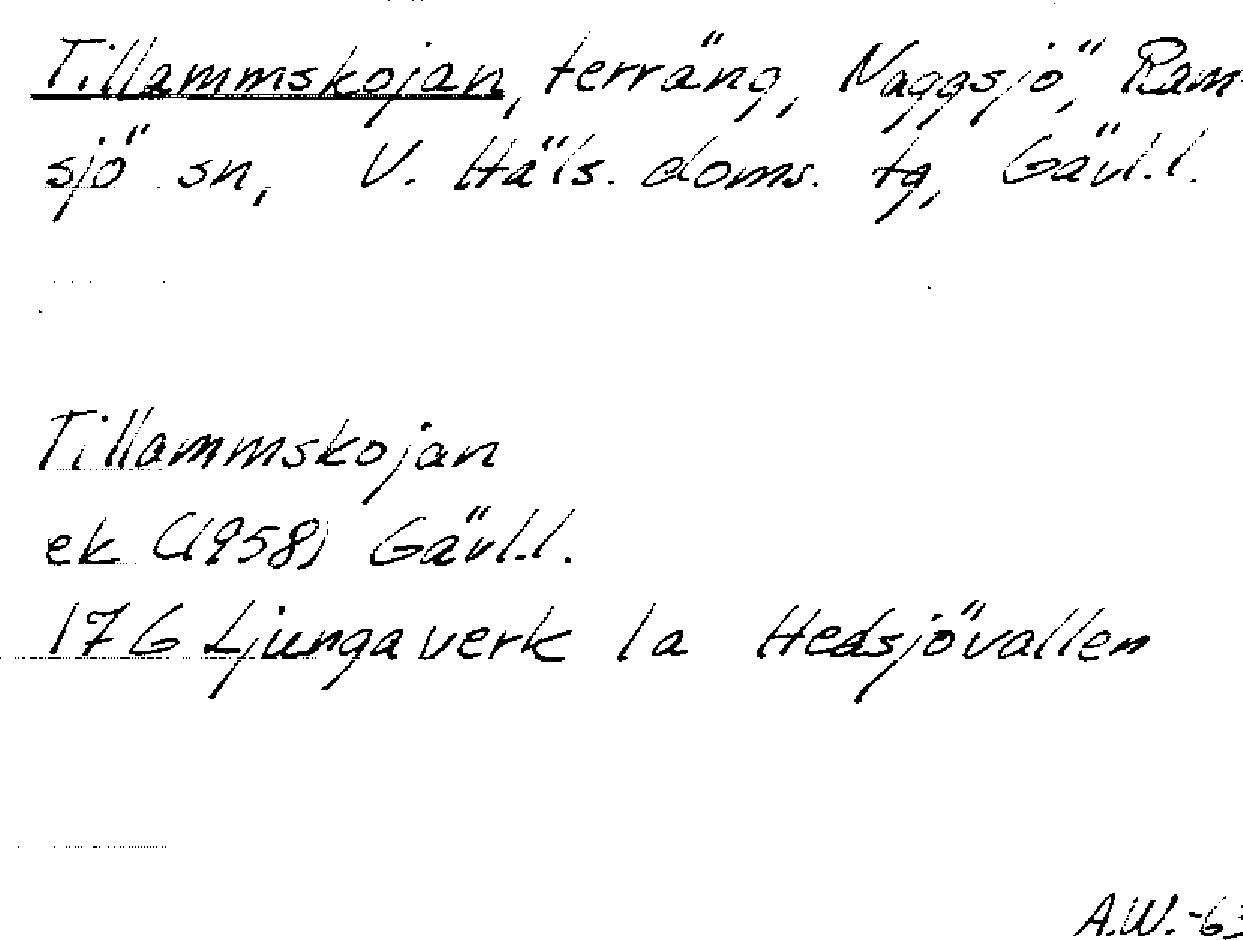 Tillammskojan, terräng, Naggsjö, Ram-
sjö sn, V. Häls. doms. tg, Gävl.l.
Tillammskojan
ek (1958) Gävl.l.
176 Ljungaverk 1a Hedsjövallen
A.W.-63